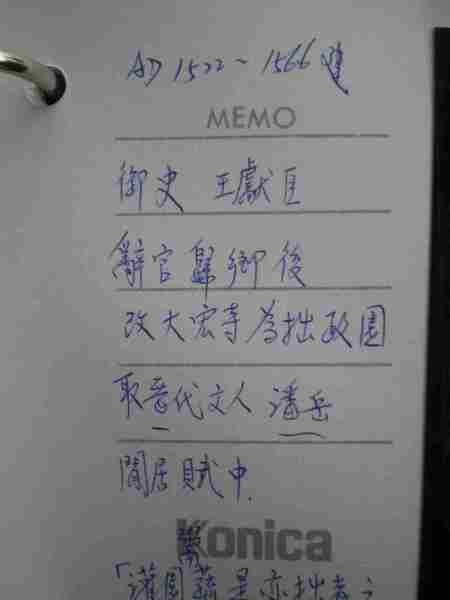 AD 1522~1566建
MEMO
御史 王獻臣
辭官歸鄉後
改大宏寺為拙政園
取晉代文人 潘岳
閒居賦中
Konica
「灌園鬻蔬是亦拙者之